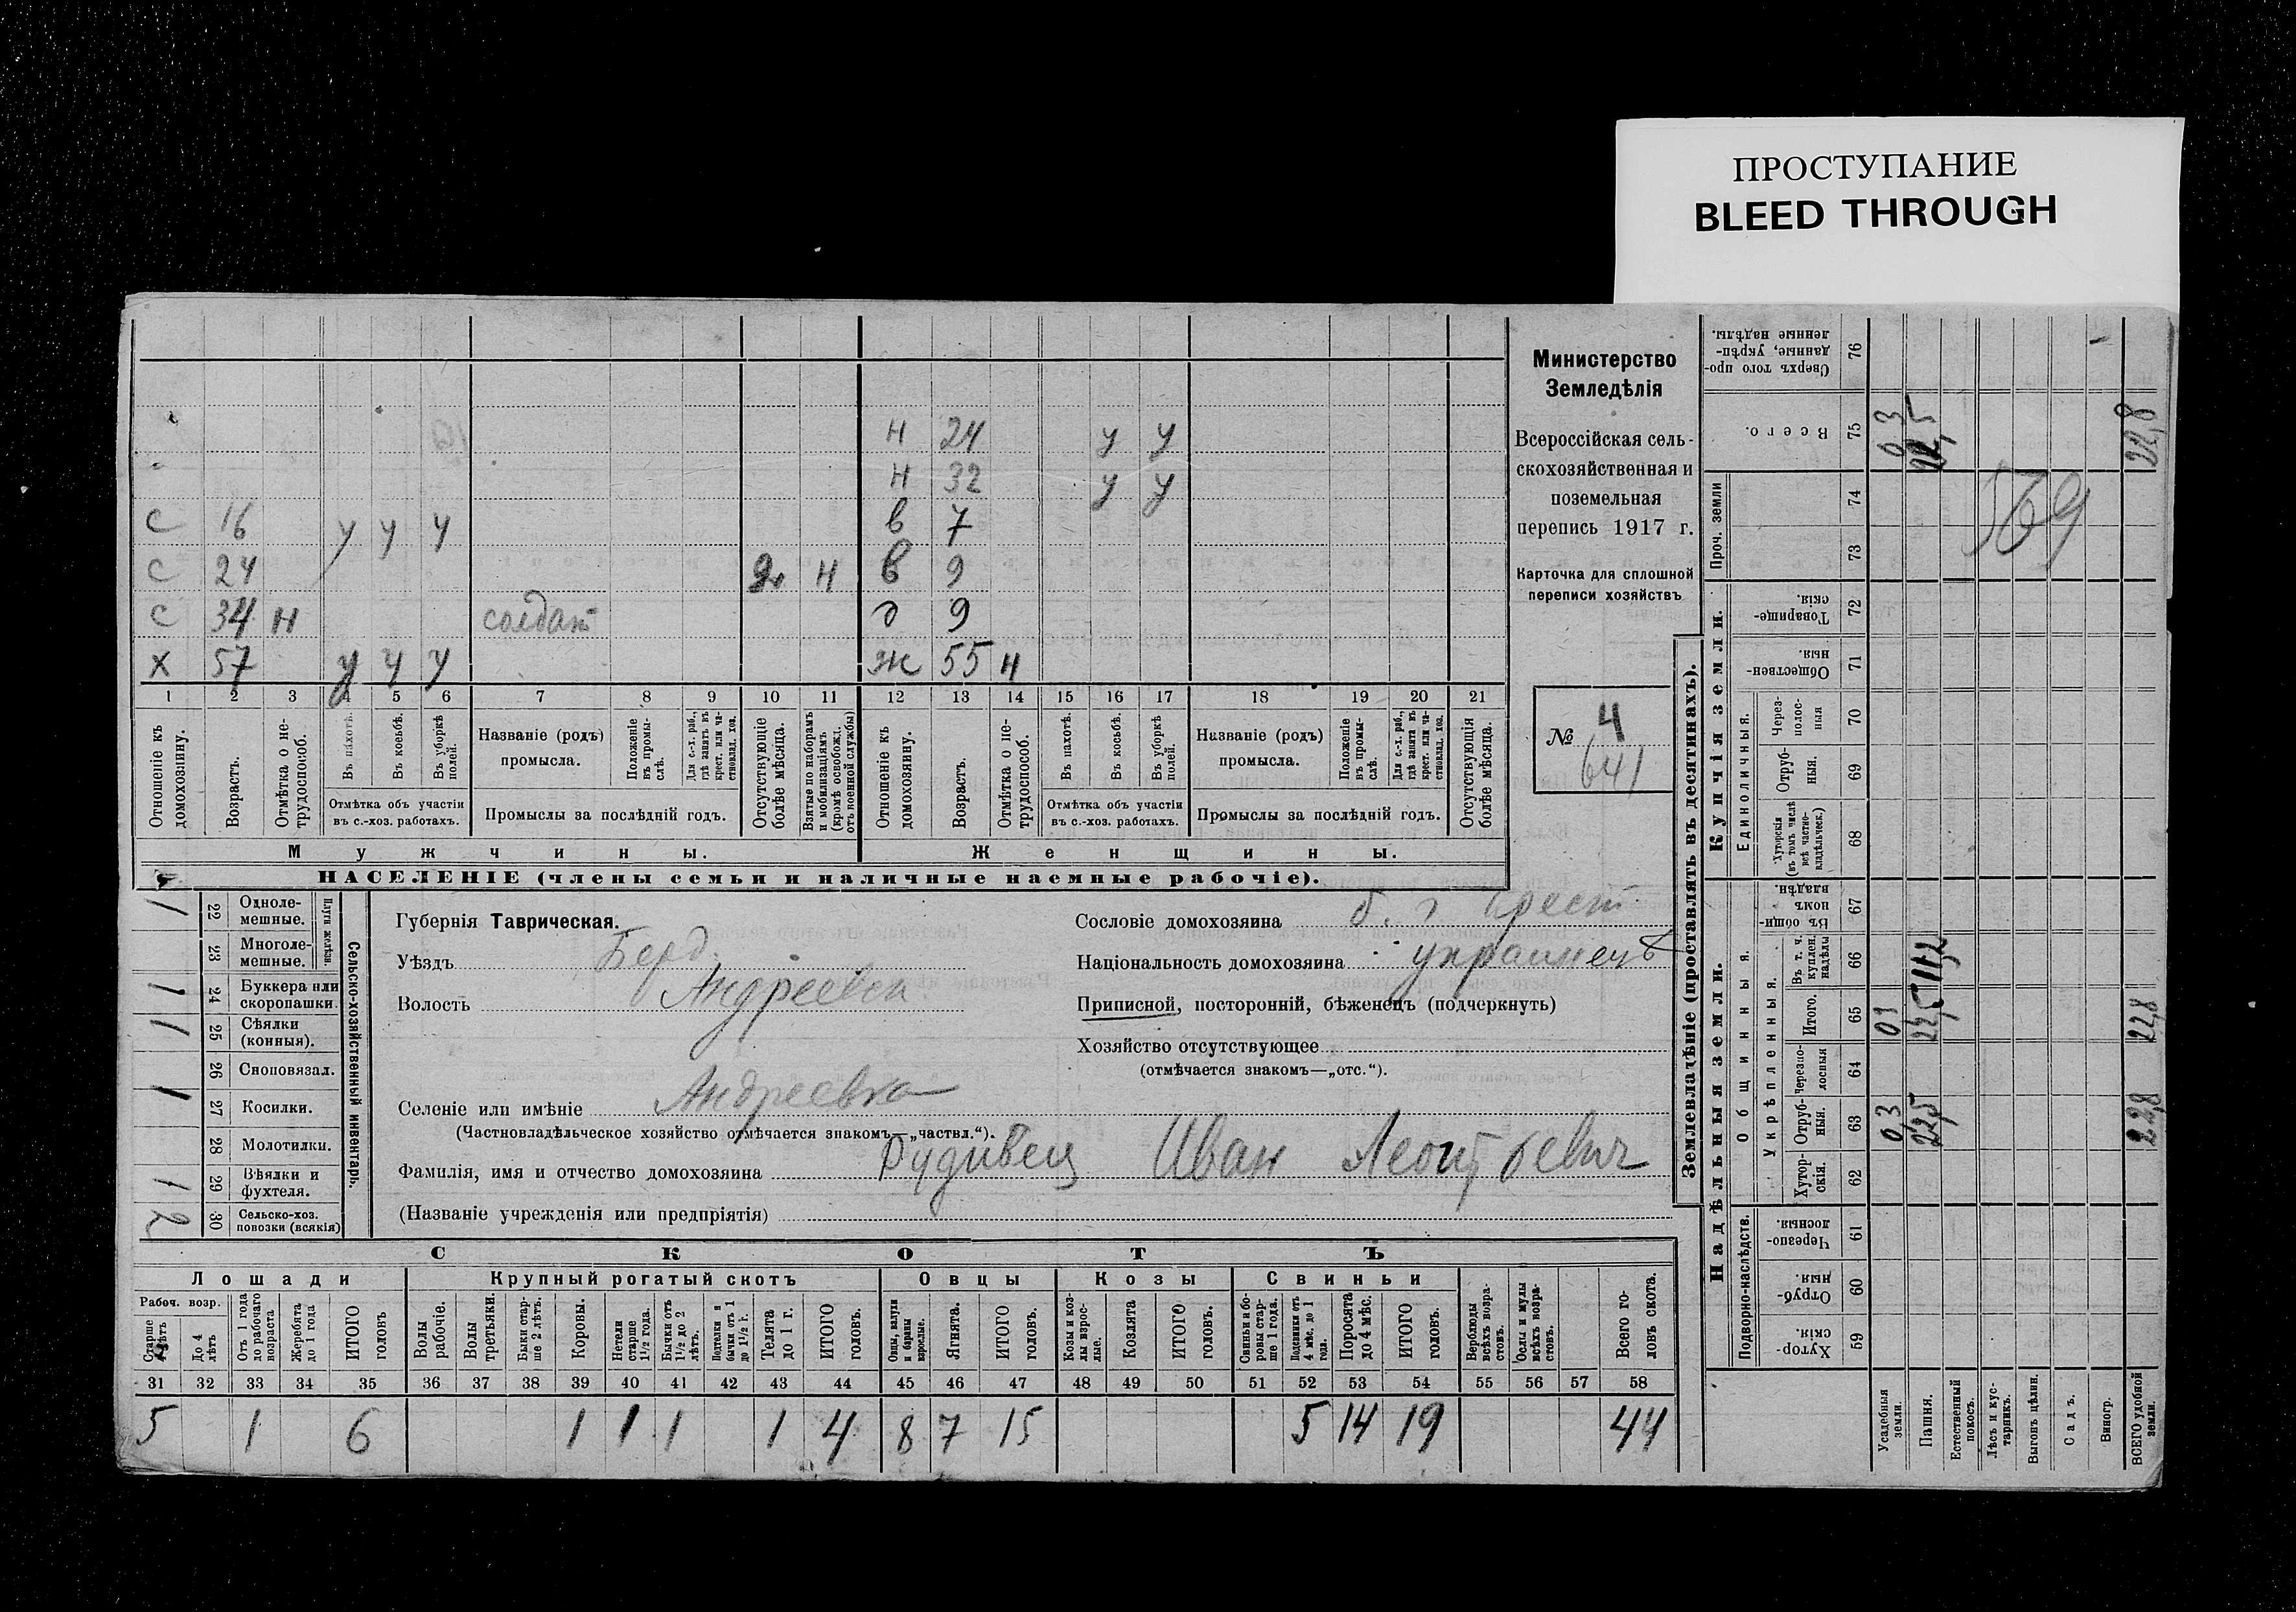 ПРОСТУПАНИЕ
BLEED THROUGH
Н 24 у у
Н 32 у у
С 16 у у у в 7
С 24 Н в 9
С 34 Н солдат д 9
Х 57 у у у ж 55 Н
1 2 3 4 5 6 7 8 9 10 11 12 13 14 15 16 17 18 19 20 21
Отношеніе къ домохозяину.
Возрастъ.
Отмѣтка о не-трудоспособ.
Въ пахотѣ.
Въ косьбѣ.
Въ уборкѣ полей.
Отмѣтка объ участіи въ с.-хоз. работахъ.
Названіе (родъ) промысла.
Положеніе въ промы-слѣ.
Для с.-х. раб., гдѣ занятъ въ крест. или ча-стновлад. хоз.
Промыслы за послѣдній годъ.
Отсутствующіе болѣе мѣсяца.
Взятые по наборамъ и мобилизаціямъ (кромѣ освобожд. отъ военной службы)
Отношеніе къ домохозяину.
Возрастъ.
Отмѣтка о не-трудоспособ.
Въ пахотѣ.
Въ косьбѣ.
Въ уборкѣ полей.
Отмѣтка объ участіи въ с.-хоз. работахъ.
Названіе (родъ) промысла.
Положеніе въ промы-слѣ.
Для с.-х. раб., гдѣ занята въ крест. или ча-стновлад. хоз.
Промыслы за послѣдній годъ.
Отсутствующія болѣе мѣсяца.
Мужчины. Женщины.
НАСЕЛЕНІЕ (члены семьи и наличные наемные рабочіе).
Министерство
Земледѣлія
Всероссійская сель-
скохозяйственная и
поземельная
перепись 1917 г.
Карточка для сплошной
переписи хозяйствъ
№ 4
641
Плуги желѣзн.
1 22 Одноле-мешные.
23 Многоле-мешные.
1 24 Буккера или скоропашки.
1 25 Сѣялки (конныя).
26 Сноповязал.
1 27 Косилки.
28 Молотилки.
1 29 Вѣялки и фухтеля.
2 30 Сельско-хоз. повозки (всякія)
Сельско-хозяйственный инвентарь.
Губернія Таврическая.
Уѣздъ Берд.
Волость Андреевск
Селеніе или имѣніе Андреевка
(Частновладѣльческое хозяйство отмѣчается знакомъ—„частвл.“).
Фамилія, имя и отчество домохозяина Рудивец Иван Леонтьевич
(Названіе учрежденія или предпріятія)
Сословіе домохозяина крест.
Національность домохозяина украинецъ
Приписной, посторонній, бѣженецъ (подчеркнуть)
Хозяйство отсутствующее
(отмѣчается знакомъ—„отс.“).
СКОТЪ
Лошади Крупный рогатый скотъ Овцы Козы Свиньи
Рабоч. возр.
Старше 4 лѣтъ
До 4 лѣтъ
Отъ 1 года до рабочаго возраста
Жеребята до 1 года
ИТОГО головъ
Волы рабочіе.
Волы третьяки.
Быки стар-ше 2 лѣтъ.
Коровы.
Нетели старше 1½ года.
Бычки отъ 1½ до 2 лѣтъ.
Подтелки и бычки отъ 1 до 1½ г.
Телята до 1 г.
ИТОГО головъ.
Овцы, валухи и бараны взрослые.
Ягнята.
ИТОГО головъ.
Козы и коз-лы взрос-лые.
Козлята
ИТОГО головъ.
Свиньи и бо-ровы стар-ше 1 года.
Подсвинки отъ 4 мѣс. до 1 года.
Поросята до 4 мѣс.
ИТОГО головъ.
Верблюды всѣхъ возра-стовъ.
Ослы и мулы всѣхъ возра-стовъ.
Всего го-ловъ скота.
31 32 33 34 35 36 37 38 39 40 41 42 43 44 45 46 47 48 49 50 51 52 53 54 55 56 57 58
5 1 6 1 1 1 1 4 8 7 15 5 14 19 44
Землевладѣніе (проставлять въ десятинахъ).
Надѣльныя земли. Купчія земли.
Подворно-наслѣдств.
Общинныя.
Укрѣпленныя.
Единоличныя.
Проч. земли
Хутор-скія. 59
Отруб-ныя. 60
Черезпо-лосныя. 61
Хутор-скія. 62
Отруб-ныя. 63 0,3 22,5 22,8
Черезпо-лосныя 64
Итого. 65 03 22,5 22,8
Въ т. ч. куплен. надѣлы 66
Въ общи-номъ владѣн. 67
Хуторскія (въ томъ числѣ всѣ частно-владѣльческ.) 68
Отруб-ныя. 69
Через-полос-ныя 70
Обществен-ныя. 71
Товарище-скія. 72
73
74
Всего. 75 0,3 22,5 22,8
Сверхъ того про-данные, укрѣп-ленные надѣлы. 76
569
Усадебныя земли.
Пашня.
Естественный покосъ.
Лѣсъ и кус-тарникъ.
Выгонъ цѣлин.
Садъ.
Виногр.
ВСЕГО удобной земли.